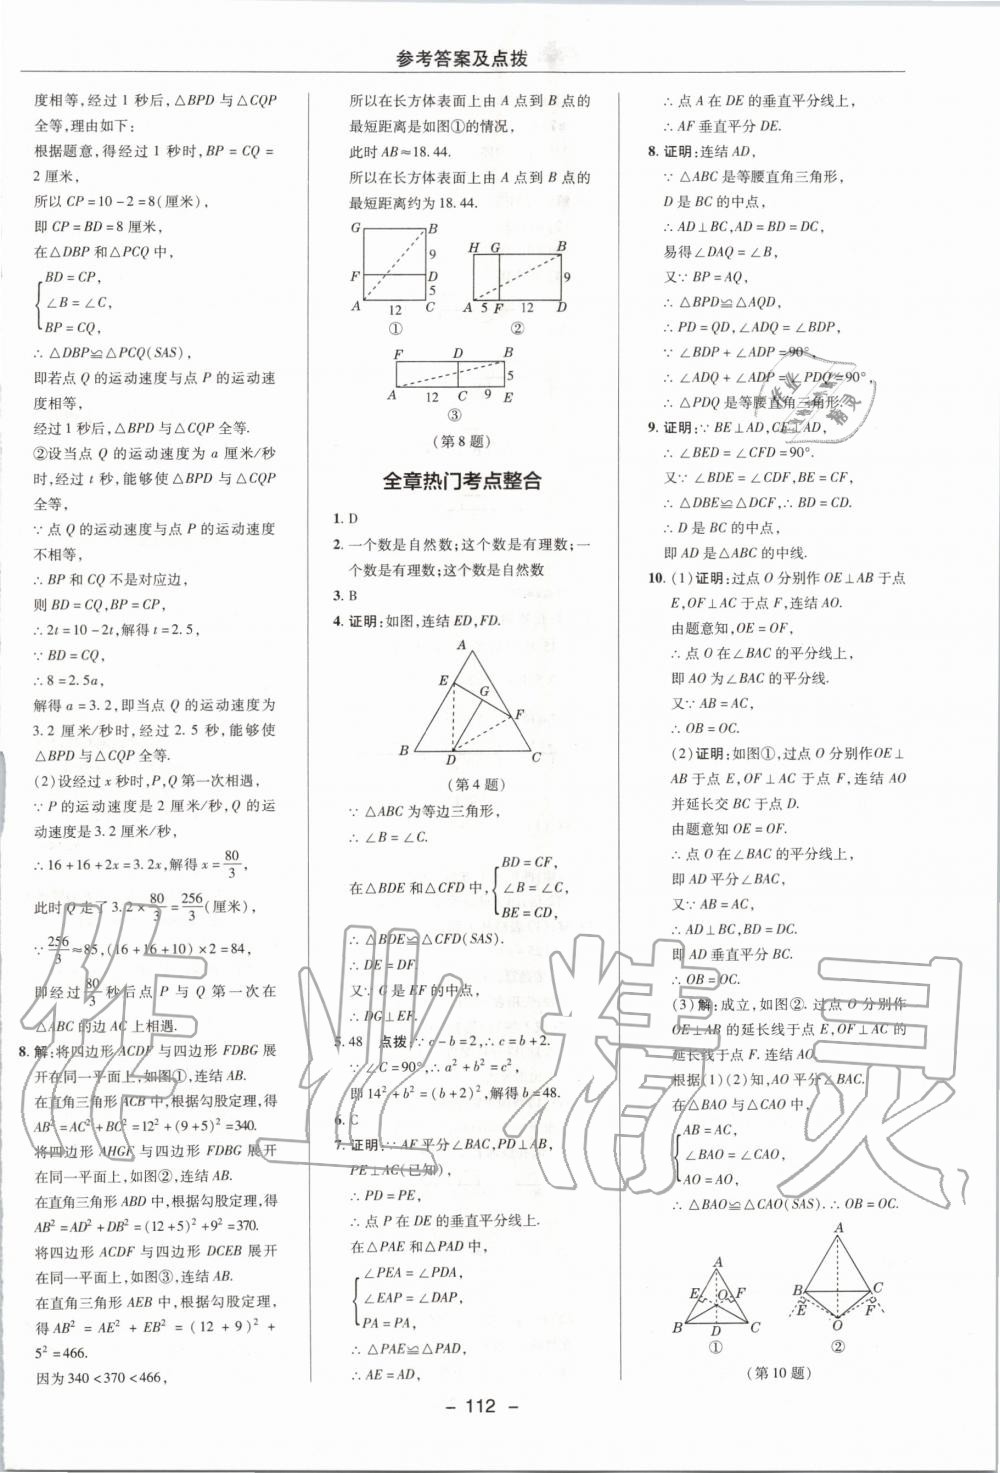 参考答案及点拨
度相等,经过 1 秒后,△BPD 与△CQP
全等,理由如下:
根据题意,得经过 1 秒时,BP = CQ =
2 厘米,
所以 CP = 10 - 2 = 8(厘米),
即 CP = BD = 8 厘米,
在△DBP 和△PCQ 中,
BD = CP,
∠B = ∠C,
BP = CQ,
∴ △DBP≌△PCQ(SAS),
即若点 Q 的运动速度与点 P 的运动速
度相等,
经过 1 秒后,△BPD 与△CQP 全等.
②设当点 Q 的运动速度为 a 厘米/秒
时,经过 t 秒,能够使△BPD 与△CQP
全等,
∵ 点 Q 的运动速度与点 P 的运动速度
不相等,
∴ BP 和 CQ 不是对应边,
则 BD = CQ,BP = CP,
∴ 2t = 10 - 2t,解得 t = 2.5,
∵ BD = CQ,
∴ 8 = 2.5a,
解得 a = 3.2,即当点 Q 的运动速度为
3.2 厘米/秒时,经过 2.5 秒,能够使
△BPD 与△CQP 全等.
(2)设经过 x 秒时,P,Q 第一次相遇,
∵ P 的运动速度是 2 厘米/秒,Q 的运
动速度是 3.2 厘米/秒,
∴ 16 + 16 + 2x = 3.2x,解得 x = 80/3,
此时 Q 走了 3.2 × 80/3 = 256/3(厘米),
∵ 256/3 ≈ 85,(16 + 16 + 10) × 2 = 84,
即经过 80/3 秒后点 P 与 Q 第一次在
△ABC 的边 AC 上相遇.
8. 解:将四边形 ACDF 与四边形 FDBG 展
开在同一平面上,如图①,连结 AB.
在直角三角形 ACB 中,根据勾股定理,得
AB² = AC² + BC² = 12² + (9 + 5)² = 340.
将四边形 AHGF 与四边形 FDBG 展开
在同一平面上,如图②,连结 AB.
在直角三角形 ABD 中,根据勾股定理,得
AB² = AD² + DB² = (12 + 5)² + 9² = 370.
将四边形 ACDF 与四边形 DCEB 展开
在同一平面上,如图③,连结 AB.
在直角三角形 AEB 中,根据勾股定理,
得 AB² = AE² + EB² = (12 + 9)² +
5² = 466.
因为 340 < 370 < 466,
所以在长方体表面上由 A 点到 B 点的
最短距离是如图①的情况,
此时 AB ≈ 18.44.
所以在长方体表面上由 A 点到 B 点的
最短距离约为 18.44.
G B
9
F D
5
A 12 C
①
H G B
9
A 5 F 12 D
②
F D B
5
A 12 C 9 E
③
(第 8 题)
全章热门考点整合
1. D
2. 一个数是自然数;这个数是有理数;一
个数是有理数;这个数是自然数
3. B
4. 证明:如图,连结 ED,FD.
A
E
G
F
B D C
(第 4 题)
∵ △ABC 为等边三角形,
∴ ∠B = ∠C.
BD = CF,
在△BDE 和△CFD 中, ∠B = ∠C,
BE = CD,
∴ △BDE≌△CFD(SAS).
∴ DE = DF.
又∵ G 是 EF 的中点,
∴ DG⊥EF.
5. 48 点拨:∵ c - b = 2,∴ c = b + 2.
∵ ∠C = 90°,∴ a² + b² = c²,
即 14² + b² = (b + 2)²,解得 b = 48.
6. C
7. 证明:∵ AF 平分∠BAC,PD⊥AB,
PE⊥AC(已知),
∴ PD = PE,
∴ 点 P 在 DE 的垂直平分线上.
在△PAE 和△PAD 中,
∠PEA = ∠PDA,
∠EAP = ∠DAP,
PA = PA,
∴ △PAE≌△PAD,
∴ AE = AD,
∴ 点 A 在 DE 的垂直平分线上,
∴ AF 垂直平分 DE.
8. 证明:连结 AD,
∵ △ABC 是等腰直角三角形,
D 是 BC 的中点,
∴ AD⊥BC,AD = BD = DC,
易得∠DAQ = ∠B,
又∵ BP = AQ,
∴ △BPD≌△AQD,
∴ PD = QD,∠ADQ = ∠BDP,
∵ ∠BDP + ∠ADP = 90°,
∴ ∠ADQ + ∠ADP = ∠PDQ = 90°,
∴ △PDQ 是等腰直角三角形.
9. 证明:∵ BE⊥AD,CF⊥AD,
∴ ∠BED = ∠CFD = 90°.
又∵ ∠BDE = ∠CDF,BE = CF,
∴ △DBE≌△DCF,∴ BD = CD.
∴ D 是 BC 的中点,
即 AD 是△ABC 的中线.
10. (1)证明:过点 O 分别作 OE⊥AB 于点
E,OF⊥AC 于点 F,连结 AO.
由题意知,OE = OF,
∴ 点 O 在∠BAC 的平分线上,
即 AO 为∠BAC 的平分线.
又∵ AB = AC,
∴ OB = OC.
(2)证明:如图①,过点 O 分别作 OE⊥
AB 于点 E,OF⊥AC 于点 F,连结 AO
并延长交 BC 于点 D.
由题意知 OE = OF.
∴ 点 O 在∠BAC 的平分线上,
即 AD 平分∠BAC,
又∵ AB = AC,
∴ AD⊥BC,BD = DC.
即 AD 垂直平分 BC,
∴ OB = OC.
(3)解:成立,如图②. 过点 O 分别作
OE⊥AB 的延长线于点 E,OF⊥AC 的
延长线于点 F. 连结 AO.
根据(1)(2)知,AO 平分∠BAC.
在△BAO 与△CAO 中,
AB = AC,
∠BAO = ∠CAO,
AO = AO,
∴ △BAO≌△CAO(SAS). ∴ OB = OC.
A
E O F
B D C
①
A
B C
E F
O
②
(第 10 题)
作业精灵
作业
精灵
- 112 -